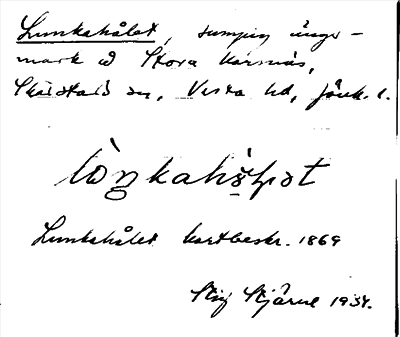 Lunkahålet, sumpig ängs-
mark å Stora Korsnäs,
Skärstads sn, Vista hd, Jönk. l.
Lunkahålet kartbeskr. 1869
Stig Stjärne 1934.